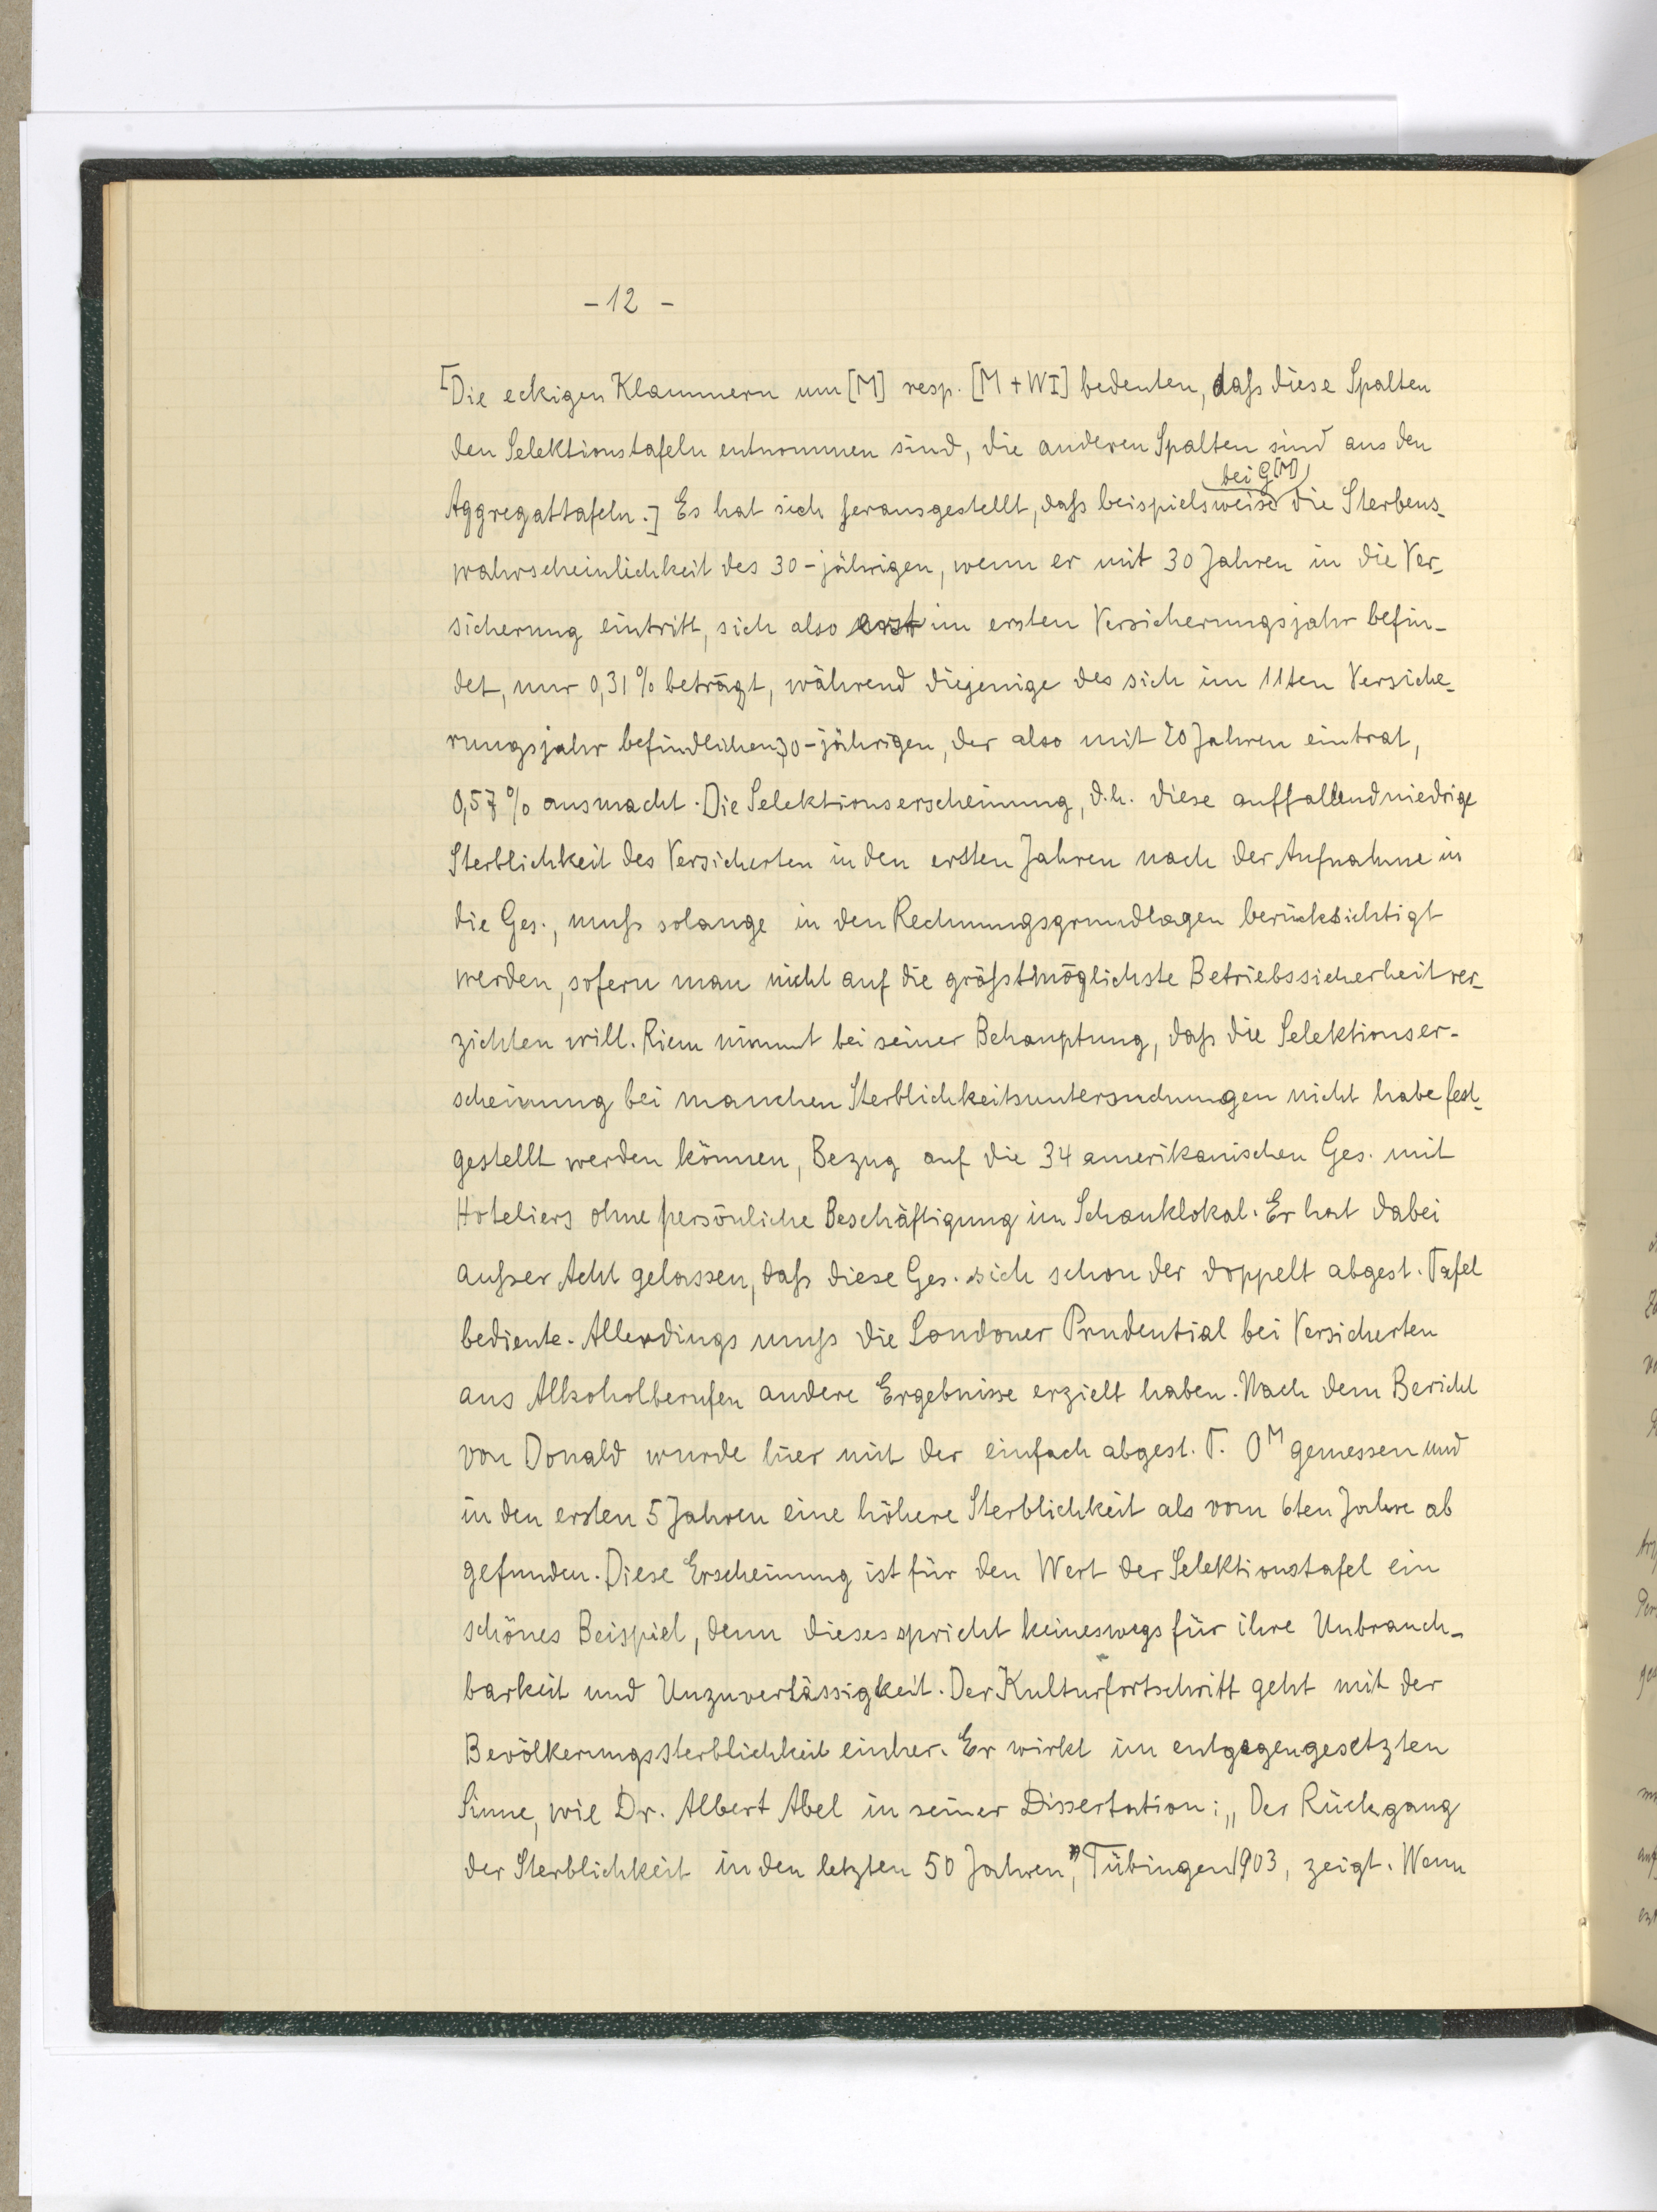 - 12 -
[Die eckigen Klammern um [M] resp. [M + WI] bedeuten, daß diese Spalten
den Selektionstafeln entnommen sind, die anderen Spalten sind aus den
bei G[M]
Aggregattafeln.] Es hat sich herausgestellt, daß beispielsweise die Sterbens-
wahrscheinlichkeit des 30-jährigen, wenn er mit 30 Jahren in die Ver-
sicherung eintritt, sich also erst im ersten Versicherungsjahr befin-
det, nur 0,31 % beträgt, während diejenige des sich im 11ten Versiche-
rungsjahr befindlichen 30-jährigen, der also mit 20 Jahren eintrat,
0,57 % ausmacht. Die Selektionserscheinung, d.h. diese auffallend niedrige
Sterblichkeit des Versicherten in den ersten Jahren nach der Aufnahme in
die Ges., muß solange in den Rechnungsgrundlagen berücksichtigt
werden, sofern man nicht auf die größtmöglichste Betriebssicherheit ver-
zichten will. Riem nimmt bei seiner Behauptung, daß die Selektionser-
scheinung bei manchen Sterblichkeitsuntersuchungen nicht habe fest-
gestellt werden können, Bezug auf die 34 amerikanischen Ges. mit
Hoteliers ohne persönliche Beschäftigung im Schanklokal. Er hat dabei
außer Acht gelassen, daß diese Ges. sich schon der doppelt abgest. Tafel
bediente. Allerdings muß die Londoner Prudential bei Versicherten
aus Alkoholberufen andere Ergebnisse erzielt haben. Nach dem Bericht
von Donald wurde hier mit der einfach abgest. T. O^M gemessen und
in den ersten 5 Jahren eine höhere Sterblichkeit als vom 6ten Jahre ab
gefunden. Diese Erscheinung ist für den Wert der Selektionstafel ein
schönes Beispiel, denn dieses spricht keineswegs für ihre Unbrauch-
barkeit und Unzuverlässigkeit. Der Kulturfortschritt geht mit der
Bevölkerungssterblichkeit einher. Er wirkt im entgegengesetzten
Sinne, wie Dr. Albert Abel in seiner Dissertation: „Der Rückgang
der Sterblichkeit in den letzten 50 Jahren", Tübingen 1903, zeigt. Wenn